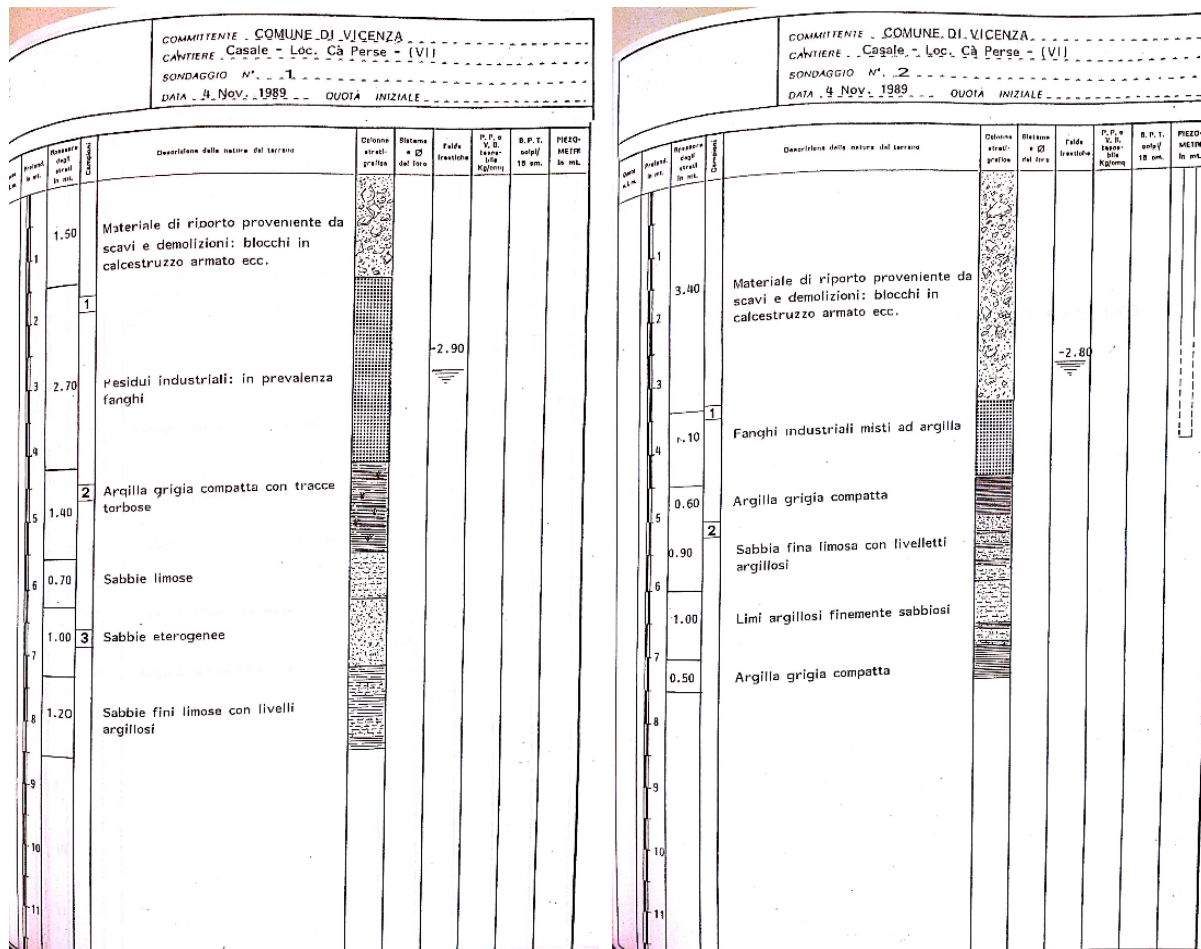 COMMITTENTE COMUNE DI VICENZA
CANTIERE Casale - Loc. Cà Perse - (VI)
SONDAGGIO N°. 1
DATA 4 Nov. 1989 QUOTA INIZIALE
Profond. in mt.
Spessore degli strati in mt.
Campioni
Descrizione della natura del terreno
Colonna strati-grafica
Sistema e Ø del foro
Falde freatiche
P.P. e V.B. tascabile Kg/cmq
S.P.T. colpi/ 15 cm.
PIEZO-METRI in mt.
1.50
Materiale di riporto proveniente da
scavi e demolizioni: blocchi in
calcestruzzo armato ecc.
1
1
2
-2.90
3
2.70
Residui industriali: in prevalenza
fanghi
4
2
Argilla grigia compatta con tracce
torbose
5
1.40
6
0.70
Sabbie limose
1.00
3
Sabbie eterogenee
7
1.20
Sabbie fini limose con livelli
argillosi
8
9
10
11
COMMITTENTE COMUNE DI VICENZA
CANTIERE Casale - Loc. Cà Perse - (VI)
SONDAGGIO N°. 2
DATA 4 Nov. 1989 QUOTA INIZIALE
Quota s.l.m.
Profond. in mt.
Spessore degli strati in mt.
Campioni
Descrizione della natura del terreno
Colonna strati-grafica
Sistema e Ø del foro
Falde freatiche
P.P. e V.B. tascabile Kg/cmq
S.P.T. colpi/ 15 cm.
PIEZO-METRI in mt.
1
3.40
Materiale di riporto proveniente da
scavi e demolizioni: blocchi in
calcestruzzo armato ecc.
2
-2.80
3
1
Fanghi industriali misti ad argilla
.10
4
0.60
Argilla grigia compatta
5
2
0.90
Sabbia fina limosa con livelletti
argillosi
6
1.00
Limi argillosi finemente sabbiosi
7
0.50
Argilla grigia compatta
8
9
10
11